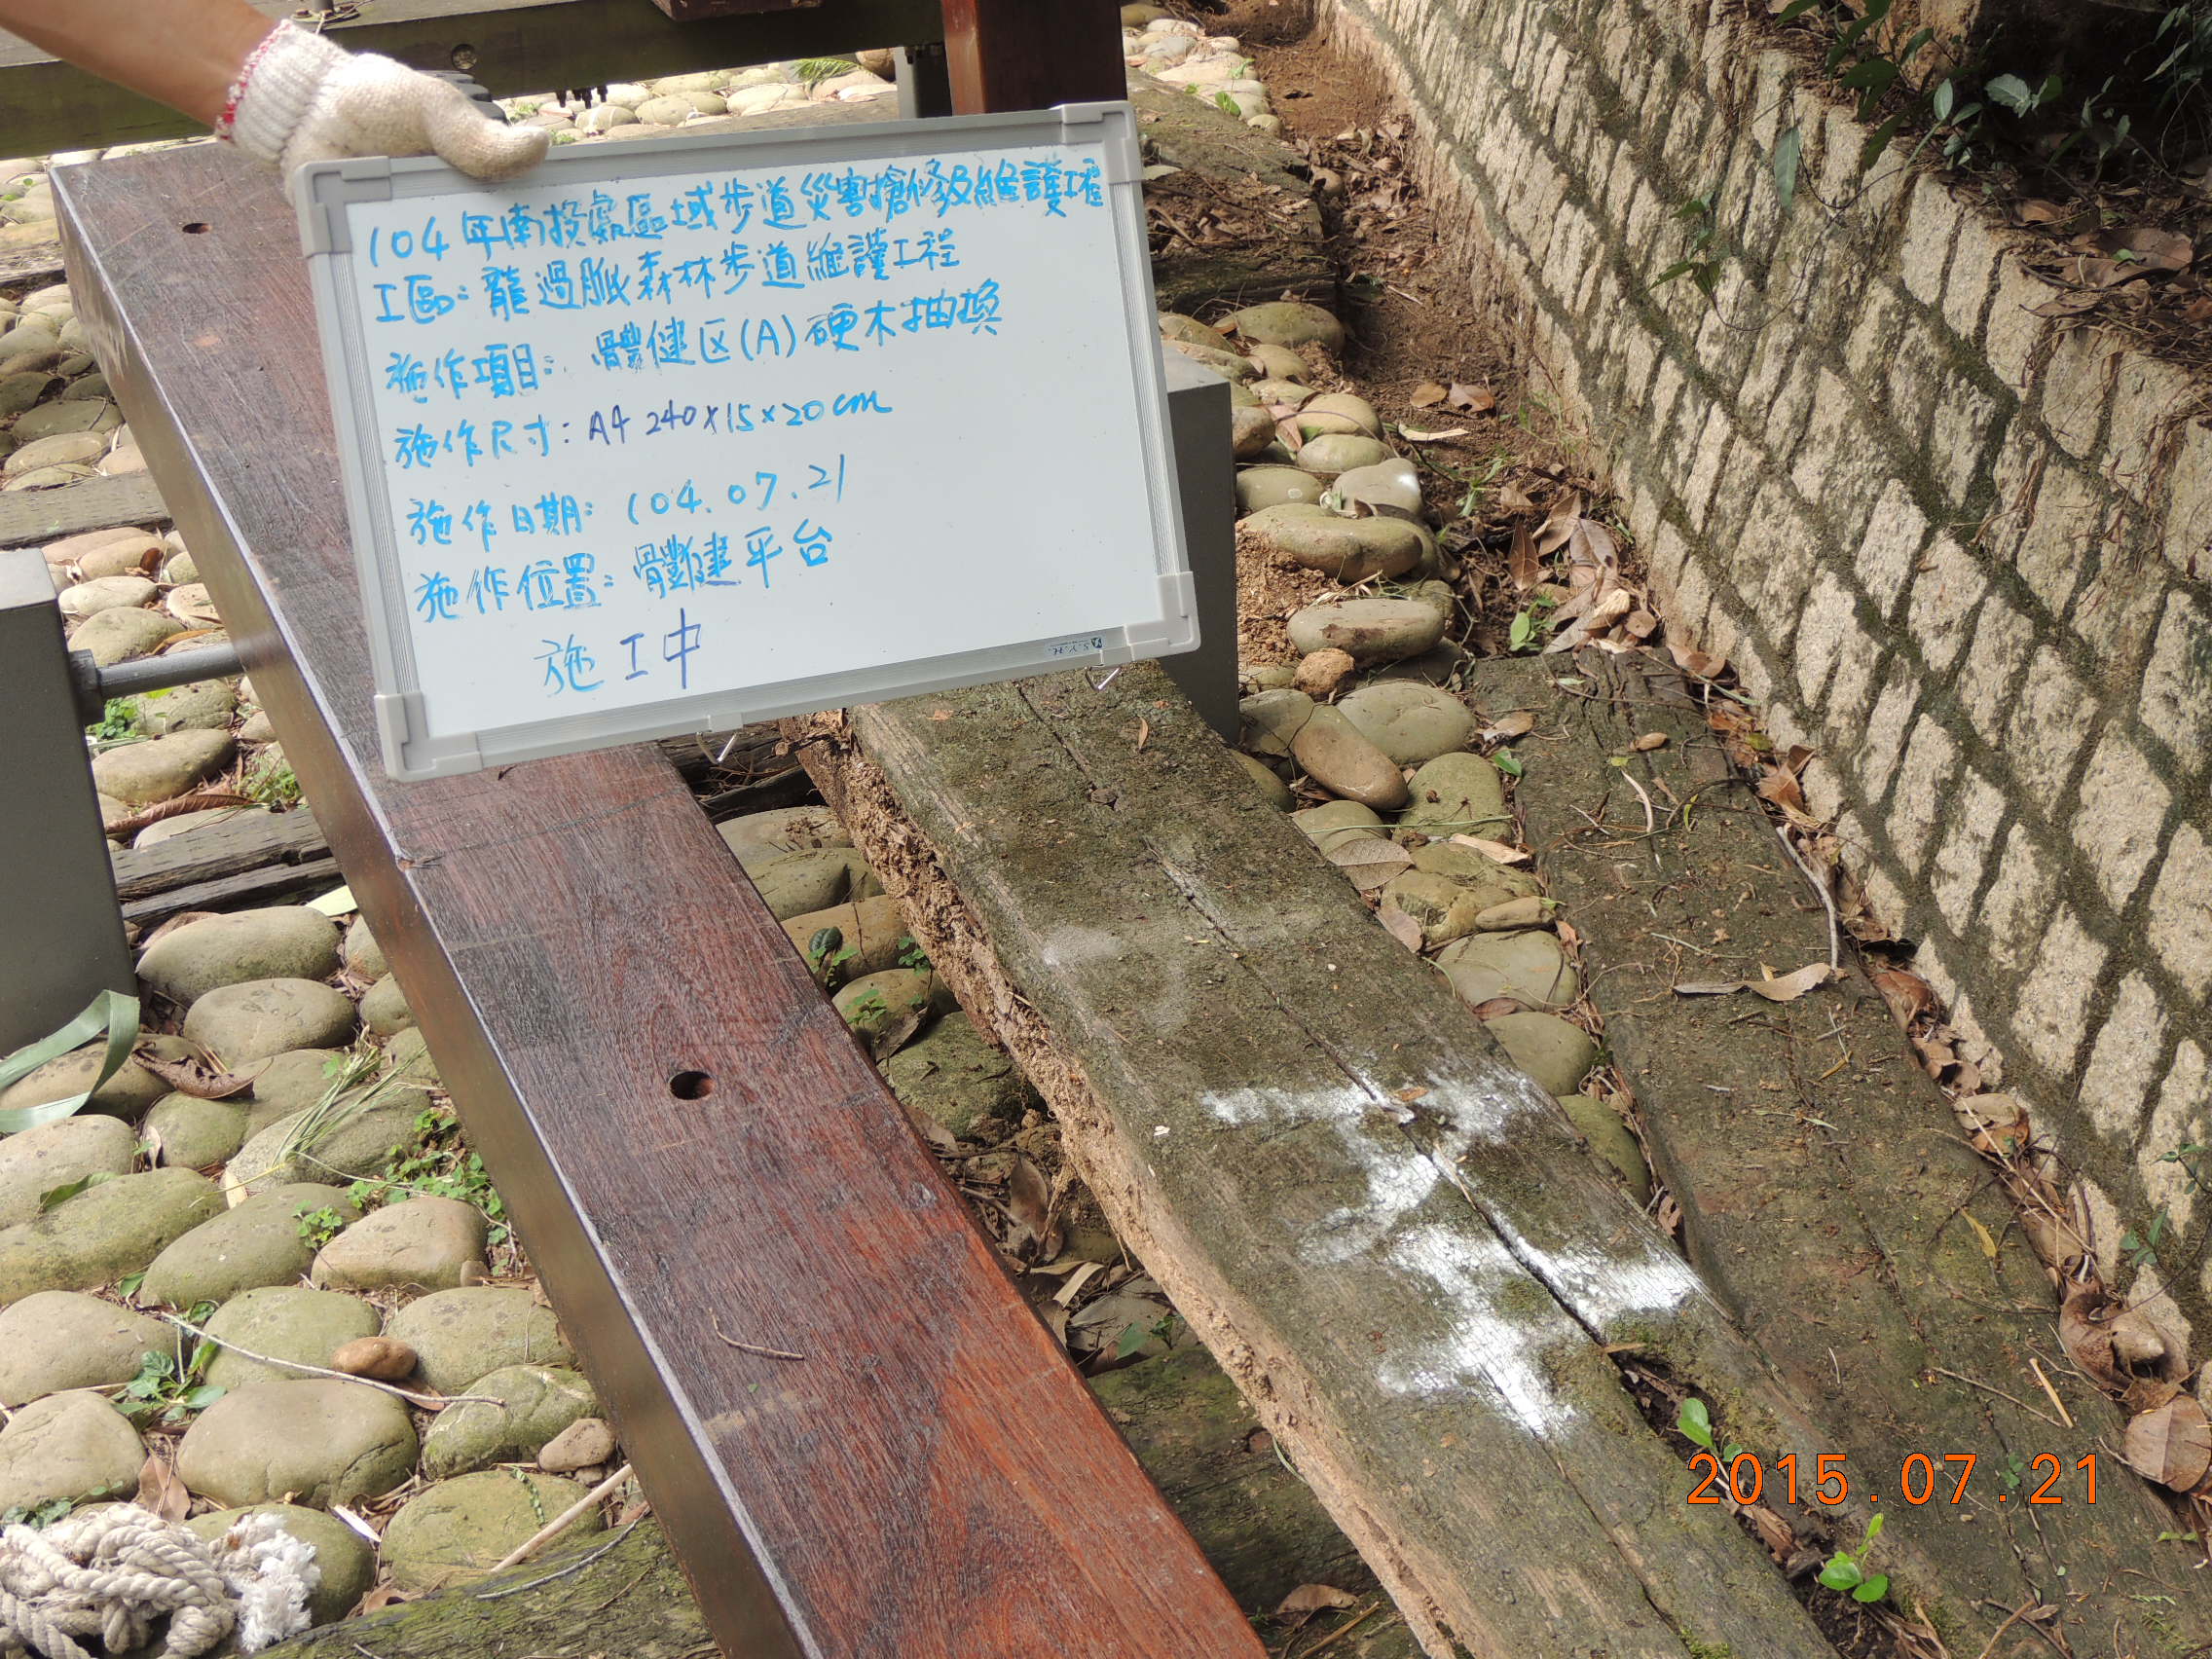 104年南投處區域步道災害搶修及維護工程
工區:龍過脈森林步道維護工程
施作項目:體健区(A)硬木抽換
施作尺寸:A4 240x15x20cm
施作日期:104.07.21
施作位置:體健平台
施工中
S.Y.H.
2015.07.21